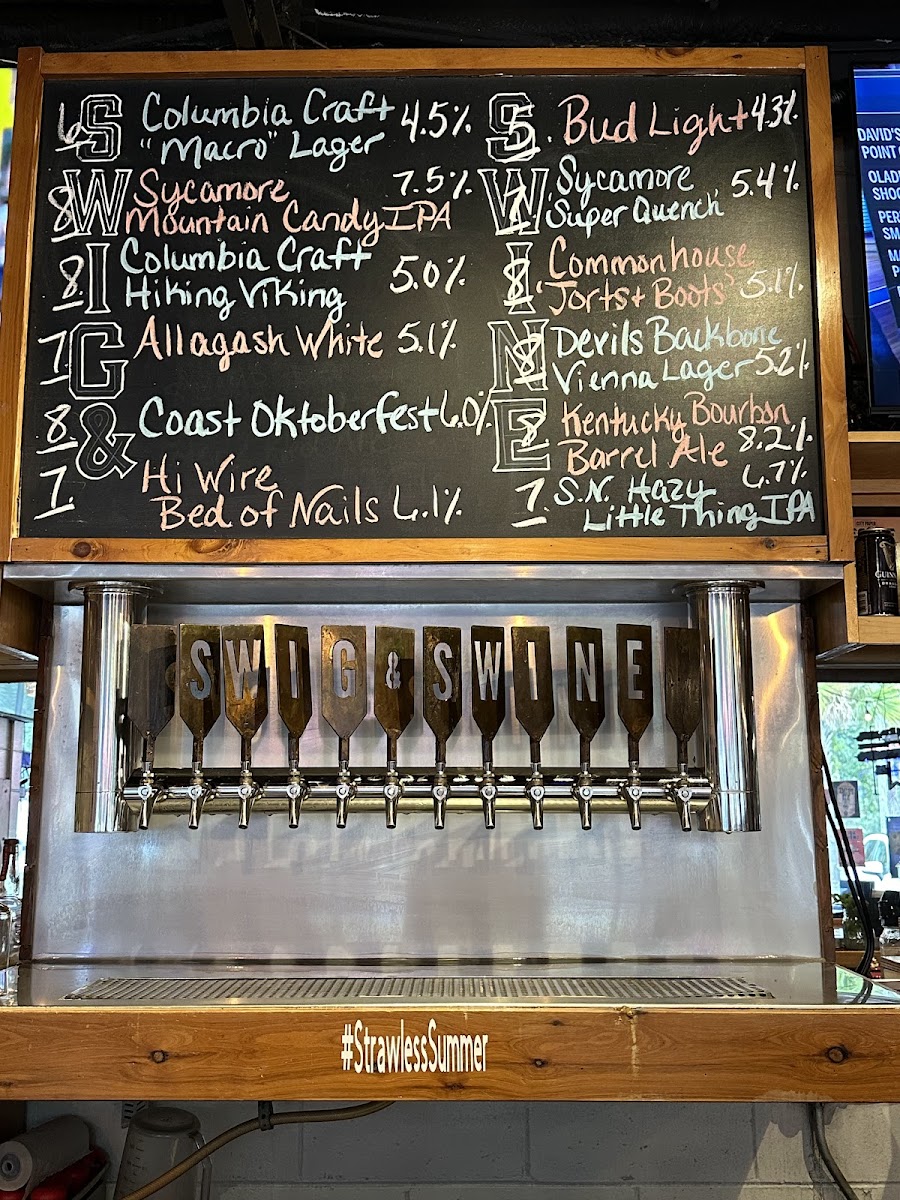 6 S Columbia Craft 4.5%
"Macro" Lager
8 W Sycamore 7.5%
Mountain Candy IPA
8 I Columbia Craft 5.0%
Hiking Viking
7. G Allagash White 5.1%
8 & Coast Oktoberfest 6.0%
7. Hi Wire
Bed of Nails 6.1%
S 5. Bud Light 4.3%
W 7 Sycamore 5.4%
Super Quench
I 8 Commonhouse
"Jorts + Boots" 5.1%
N 8 Devils Backbone
Vienna Lager 5.2%
E 8 Kentucky Bourbon
Barrel Ale 8.2%
7 S.N. Hazy 6.7%
Little Thing IPA
SWIG & SWINE
#StrawlessSummer
DAVID'S
POINT
SHOO
PER
SM
GUINN